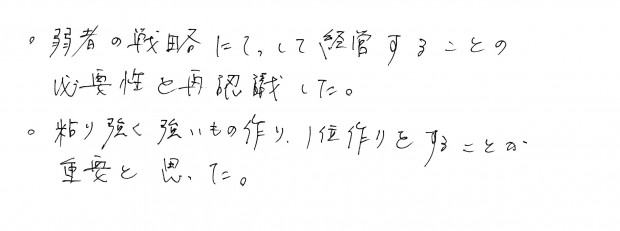 。弱者の戦略にてっして経営することの
必要性を再認識した。
。粘り強く強いもの作り、1位作りをすることが
重要と思った。